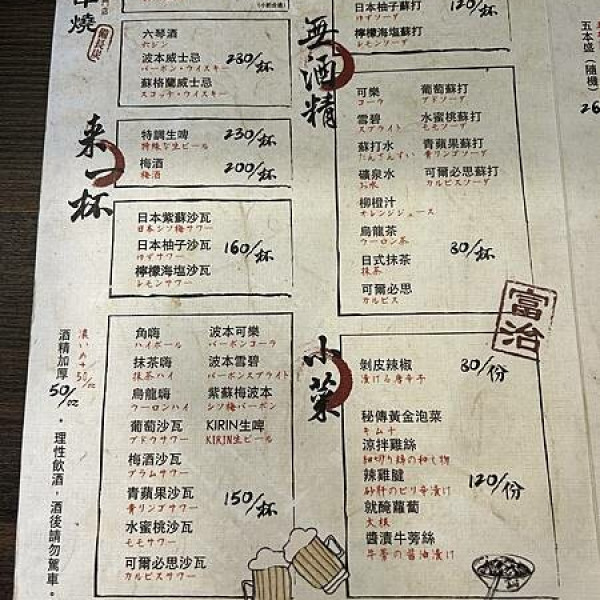 串燒
專門店
備長炭
(小杯合適)
六琴酒
六ジン
波本威士忌
バーボン・ウイスキー
蘇格蘭威士忌
スコッチ・ウイスキー
230/杯
来一杯
特調生啤
特殊な生ビール
230/杯
梅酒
梅酒
200/杯
日本紫蘇沙瓦
日本シソ梅サワー
日本柚子沙瓦
ゆずサワー
檸檬海塩沙瓦
レモンサワー
160/杯
角嗨
ハイボール
抹茶嗨
抹茶ハイ
烏龍嗨
ウーロンハイ
葡萄沙瓦
ブドウサワー
梅酒沙瓦
プラムサワー
青蘋果沙瓦
青リンゴサワー
水蜜桃沙瓦
モモサワー
可爾必思沙瓦
カルピスサワー
波本可樂
バーボンコーラ
波本雪碧
バーボンスプライト
紫蘇梅波本
シソ梅バーボン
KIRIN生啤
KIRIN生ビール
150/杯
酒精加厚 50/oz
濃いめ+50
・理性飲酒，酒後請勿駕車。
無酒精
日本柚子蘇打
ゆずソーダ
檸檬海塩蘇打
レモンソーダ
120/杯
可樂
コーラ
雪碧
スプライト
蘇打水
たんさんすい
礦泉水
お水
柳橙汁
オレンジジュース
烏龍茶
ウーロン茶
日式抹茶
抹茶
可爾必思
カルピス
葡萄蘇打
水蜜桃蘇打
モモソーダ
青蘋果蘇打
青リンゴソーダ
可爾必思蘇打
カルピスソーダ
80/杯
富治
小菜
剝皮辣椒
漬ける唐辛子
80/份
秘傳黃金泡菜
キムチ
涼拌雞絲
細切り鶏の和し物
辣雞腱
砂肝のピリ辛漬け
就醃蘿蔔
大根
醬漬牛蒡絲
牛蒡の醤油漬け
120/份
五本盛（隨機）